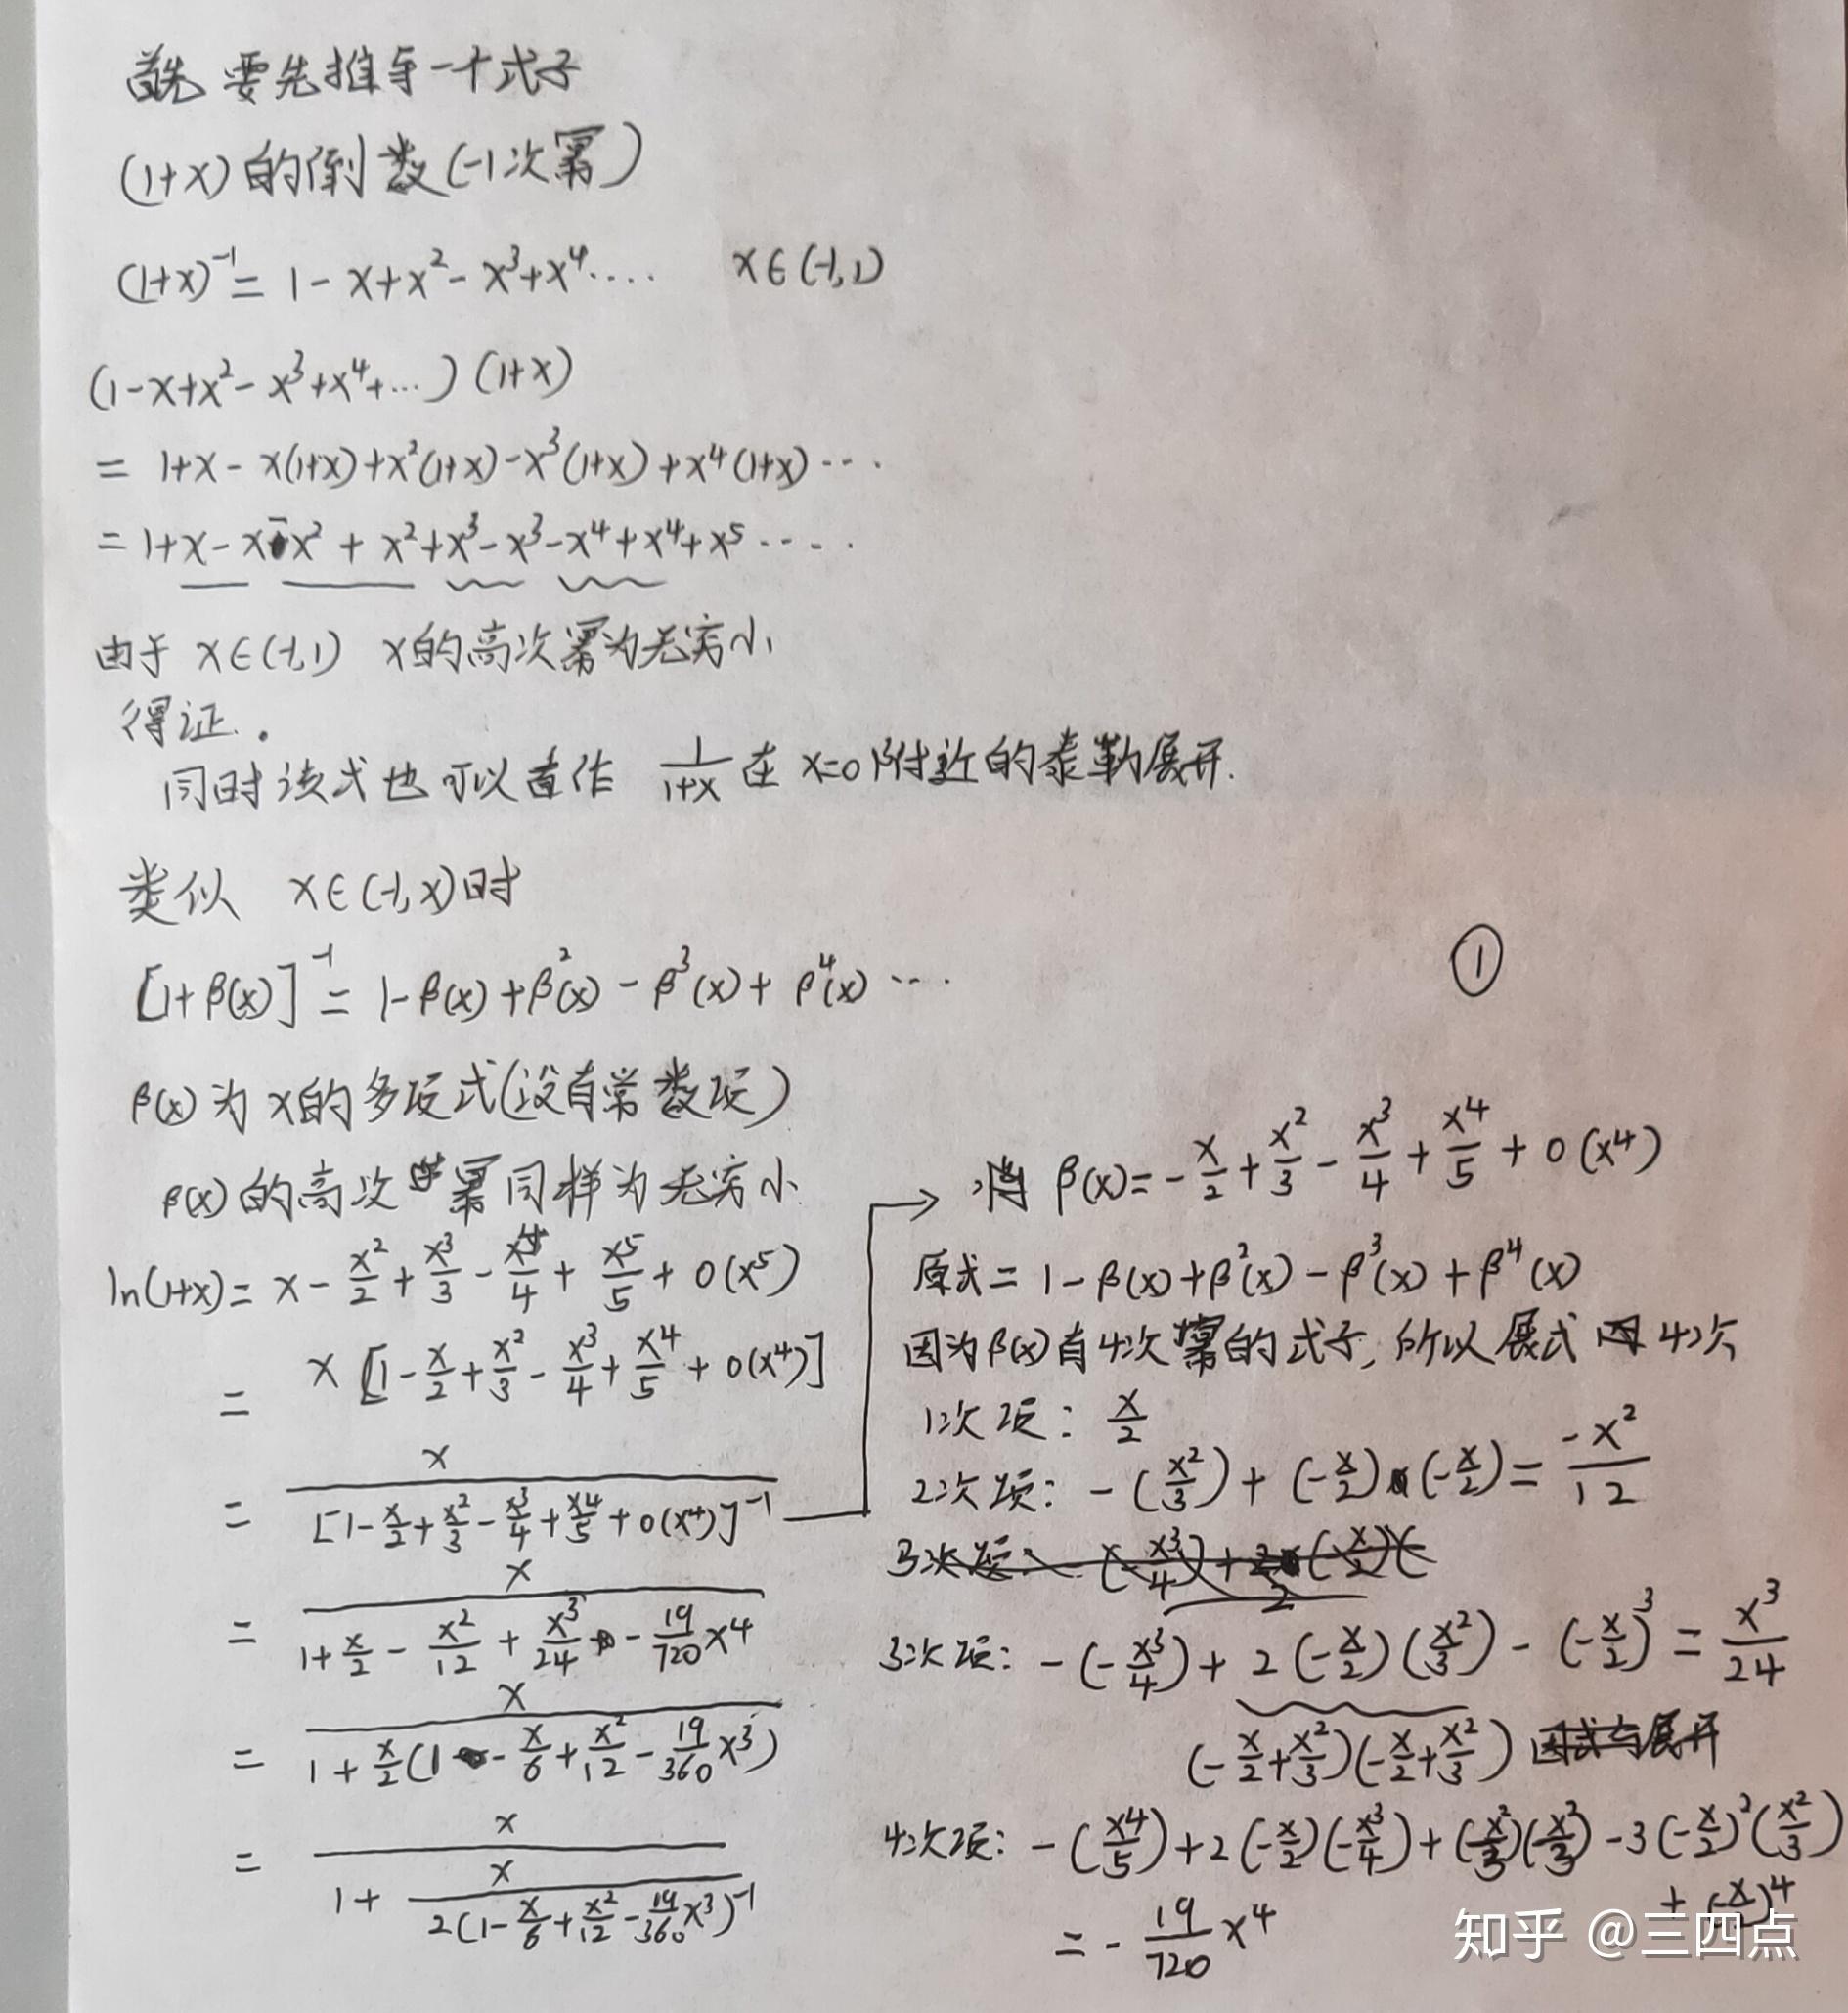 首先 要先推导一个式子
(1+x)的倒数(-1次幂)
(1+x)⁻¹ = 1 - x + x² - x³ + x⁴ ····    x∈(-1,1)
(1 - x + x² - x³ + x⁴ + ···)(1+x)
= 1+x - x(1+x) + x²(1+x) - x³(1+x) + x⁴(1+x) ····
= 1+x - x - x² + x² + x³ - x³ - x⁴ + x⁴ + x⁵ ·····
由于 x∈(-1,1) x的高次幂为无穷小
得证.
同时该式也可以看作 1/(1+x) 在 x=0 附近的泰勒展开.
类似 x∈(-1,x)时
[1+β(x)]⁻¹ = 1 - β(x) + β²(x) - β³(x) + β⁴(x) ···
①
β(x)为x的多项式(没有常数项)
β(x)的高次幂同样为无穷小
ln(1+x) = x - x²/2 + x³/3 - x⁴/4 + x⁵/5 + o(x⁵)
= x[1 - x/2 + x²/3 - x³/4 + x⁴/5 + o(x⁴)]
= x/[1 - x/2 + x²/3 - x³/4 + x⁴/5 + o(x⁴)]⁻¹
= x/(1 + x/2 - x²/12 + x³/24 - 19/720 x⁴)
= x/(1 + x/2(1 - x/6 + x²/12 - 19/360 x³))
= x/(1 + x/(2(1 - x/6 + x²/12 - 19/360 x³)⁻¹))
→ 当 β(x) = -x/2 + x²/3 - x³/4 + x⁴/5 + o(x⁴)
原式 = 1 - β(x) + β²(x) - β³(x) + β⁴(x)
因为β(x)有4次幂的式子, 所以展式 4次
1次项: x/2
2次项: -(x²/3) + (-x/2)(-x/2) = -x²/12
3次项: -(-x³/4) + 2(-x/2)(x²/3) - (-x/2)³ = x³/24
(-x/2 + x²/3)(-x/2 + x²/3)
4次项: -(x⁴/5) + 2(-x/2)(-x³/4) + (x²/3)(x²/3) - 3(-x/2)²(x²/3)
+ (-x/2)⁴
= -19/720 x⁴
知乎 @三四点